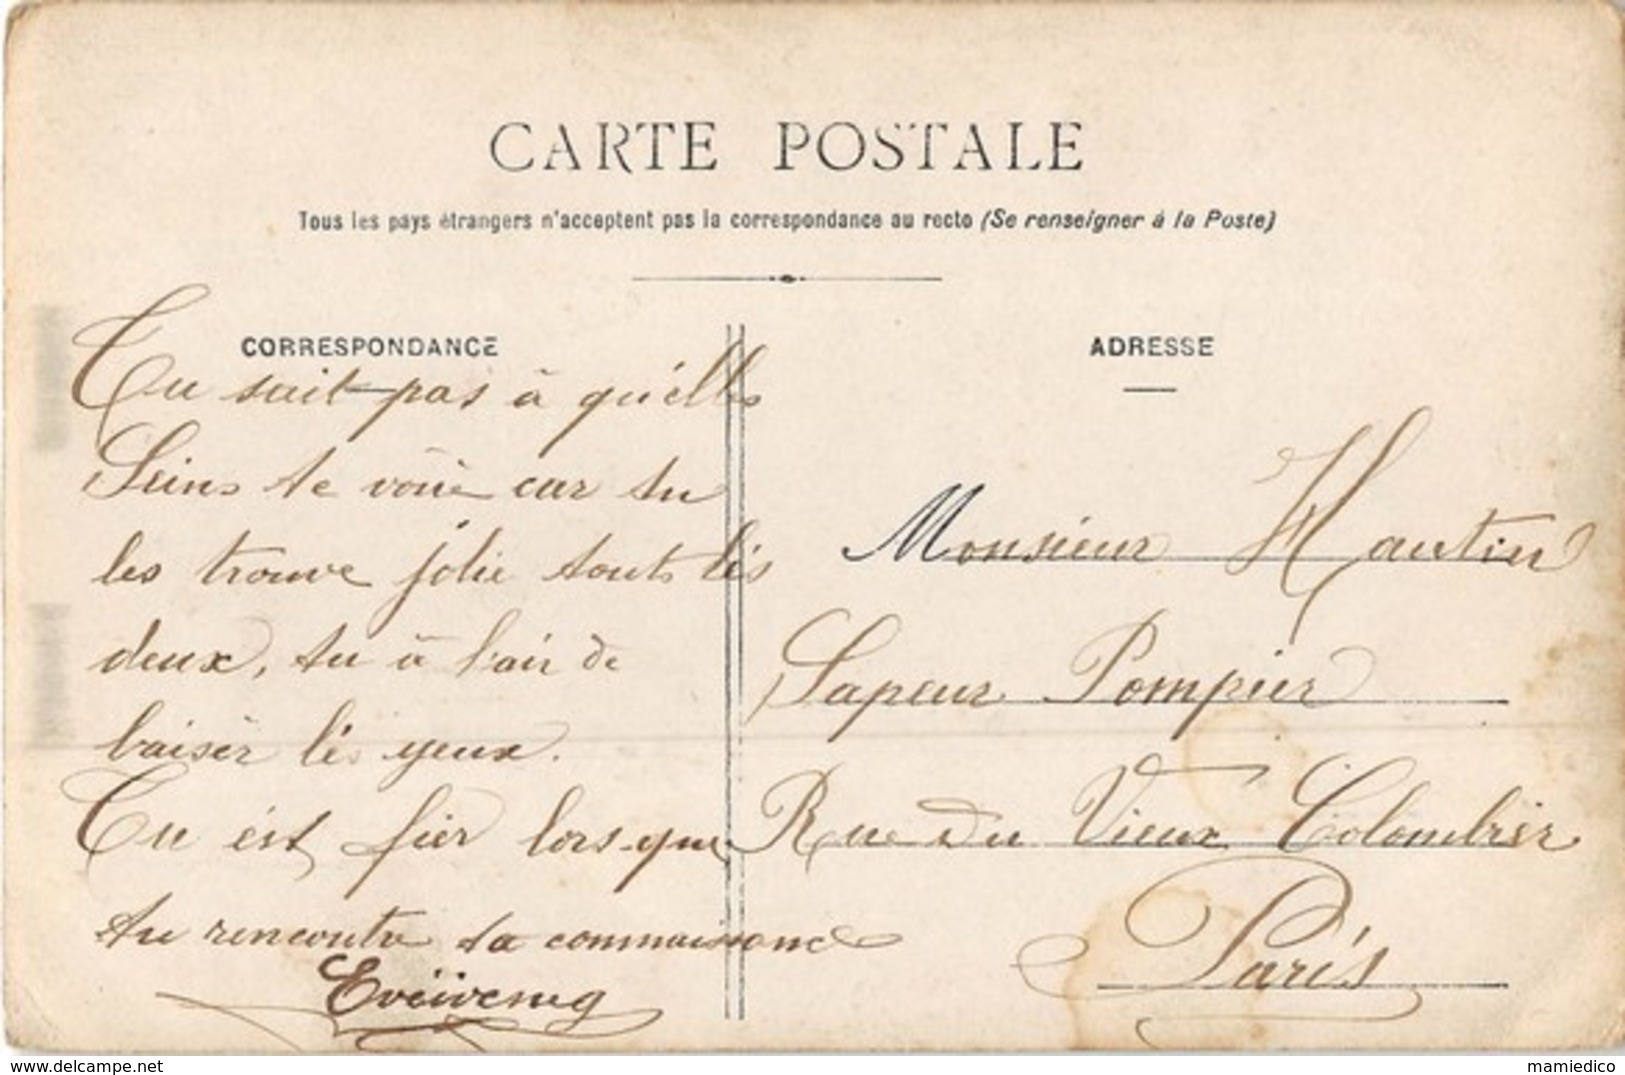 CARTE POSTALE
Tous les pays étrangers n'acceptent pas la correspondance au recto (Se renseigner à la Poste)
CORRESPONDANCE
Tu sait pas à qu'elles
Seins te voüe car tu
les trouve jolie touts lés
deux, tu à l'air de
baisér lés yeux.
Tu ést fier lorsque
tu rencontre ta connaissance
ADRESSE
Monsieur Hautin
Sapeur Pompier
Rue du Vieux Colombier
Paris
delcampe.net
mamiedico